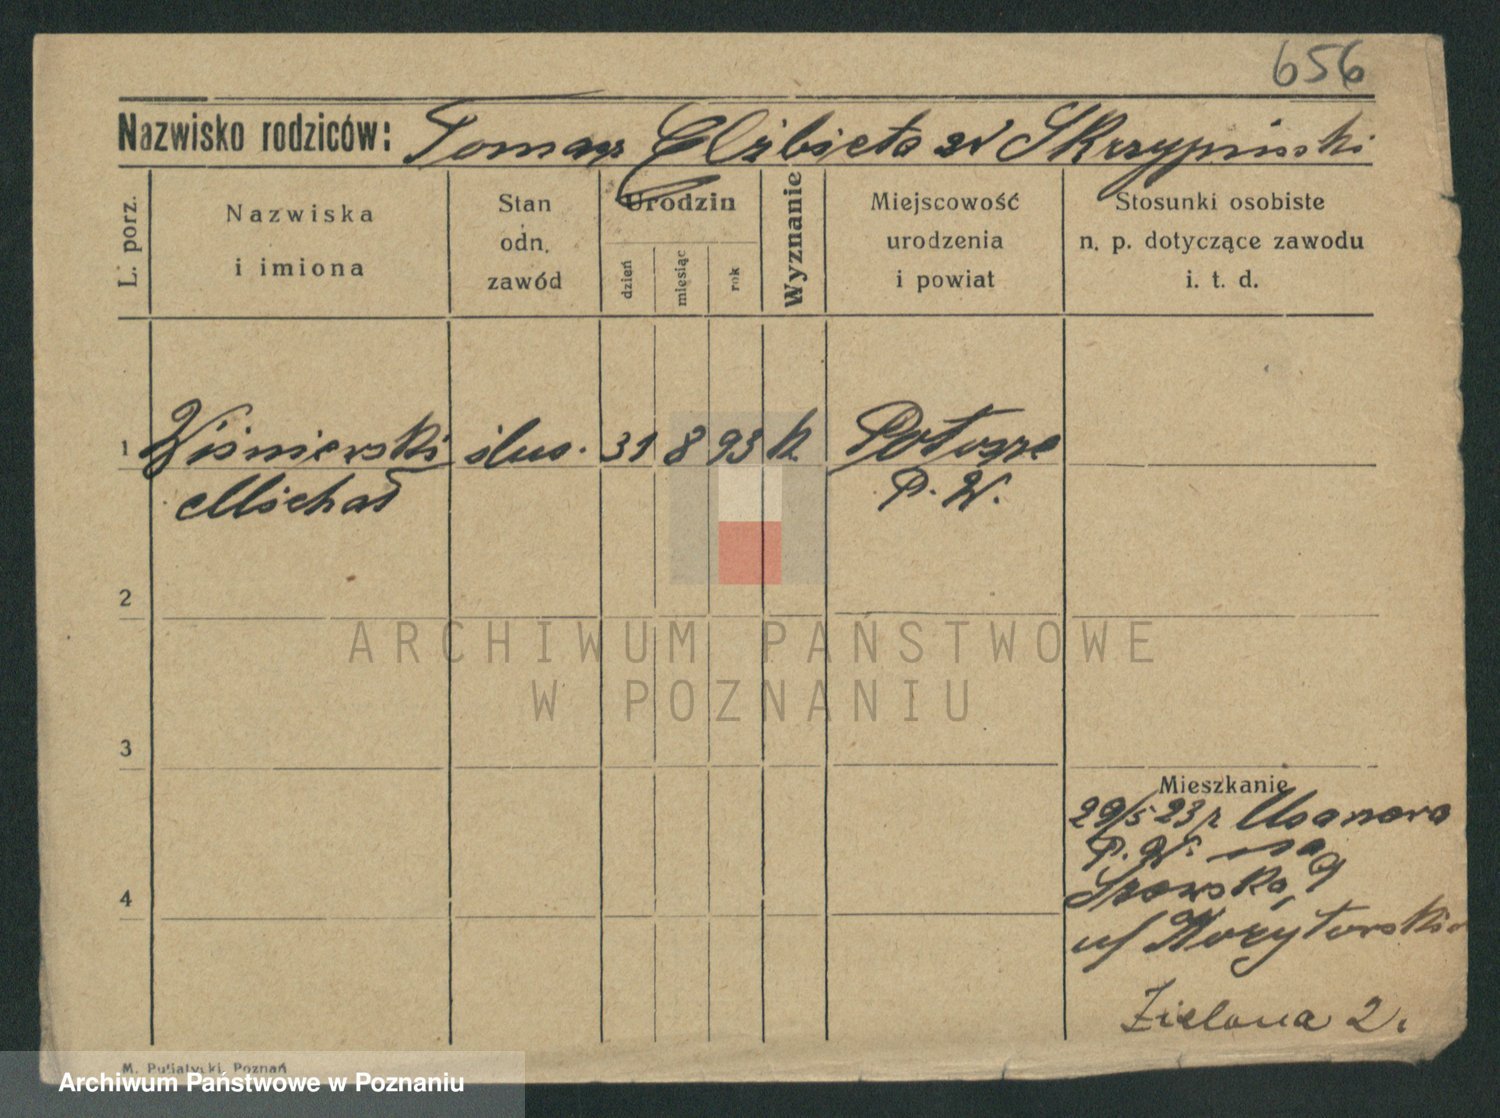 656
Nazwisko rodziców: Tomasz Elżbieta zd Skrzypiński
L. porz.
Nazwiska
i imiona
Stan
odn.
zawód
Urodzin
dzień
miesiąc
rok
Wyznanie
Miejscowość
urodzenia
i powiat
Stosunki osobiste
n. p. dotyczące zawodu
i. t. d.
1 Wiśniewski ślus. 31 8 93 k
Michał P. W.
2
ARCHIWUM PAŃSTWOWE
W POZNANIU
3
Mieszkanie
29/5 23 r
P. W.
4
ul
Zielona 2.
M. Putiatycki, Poznań
Archiwum Państwowe w Poznaniu